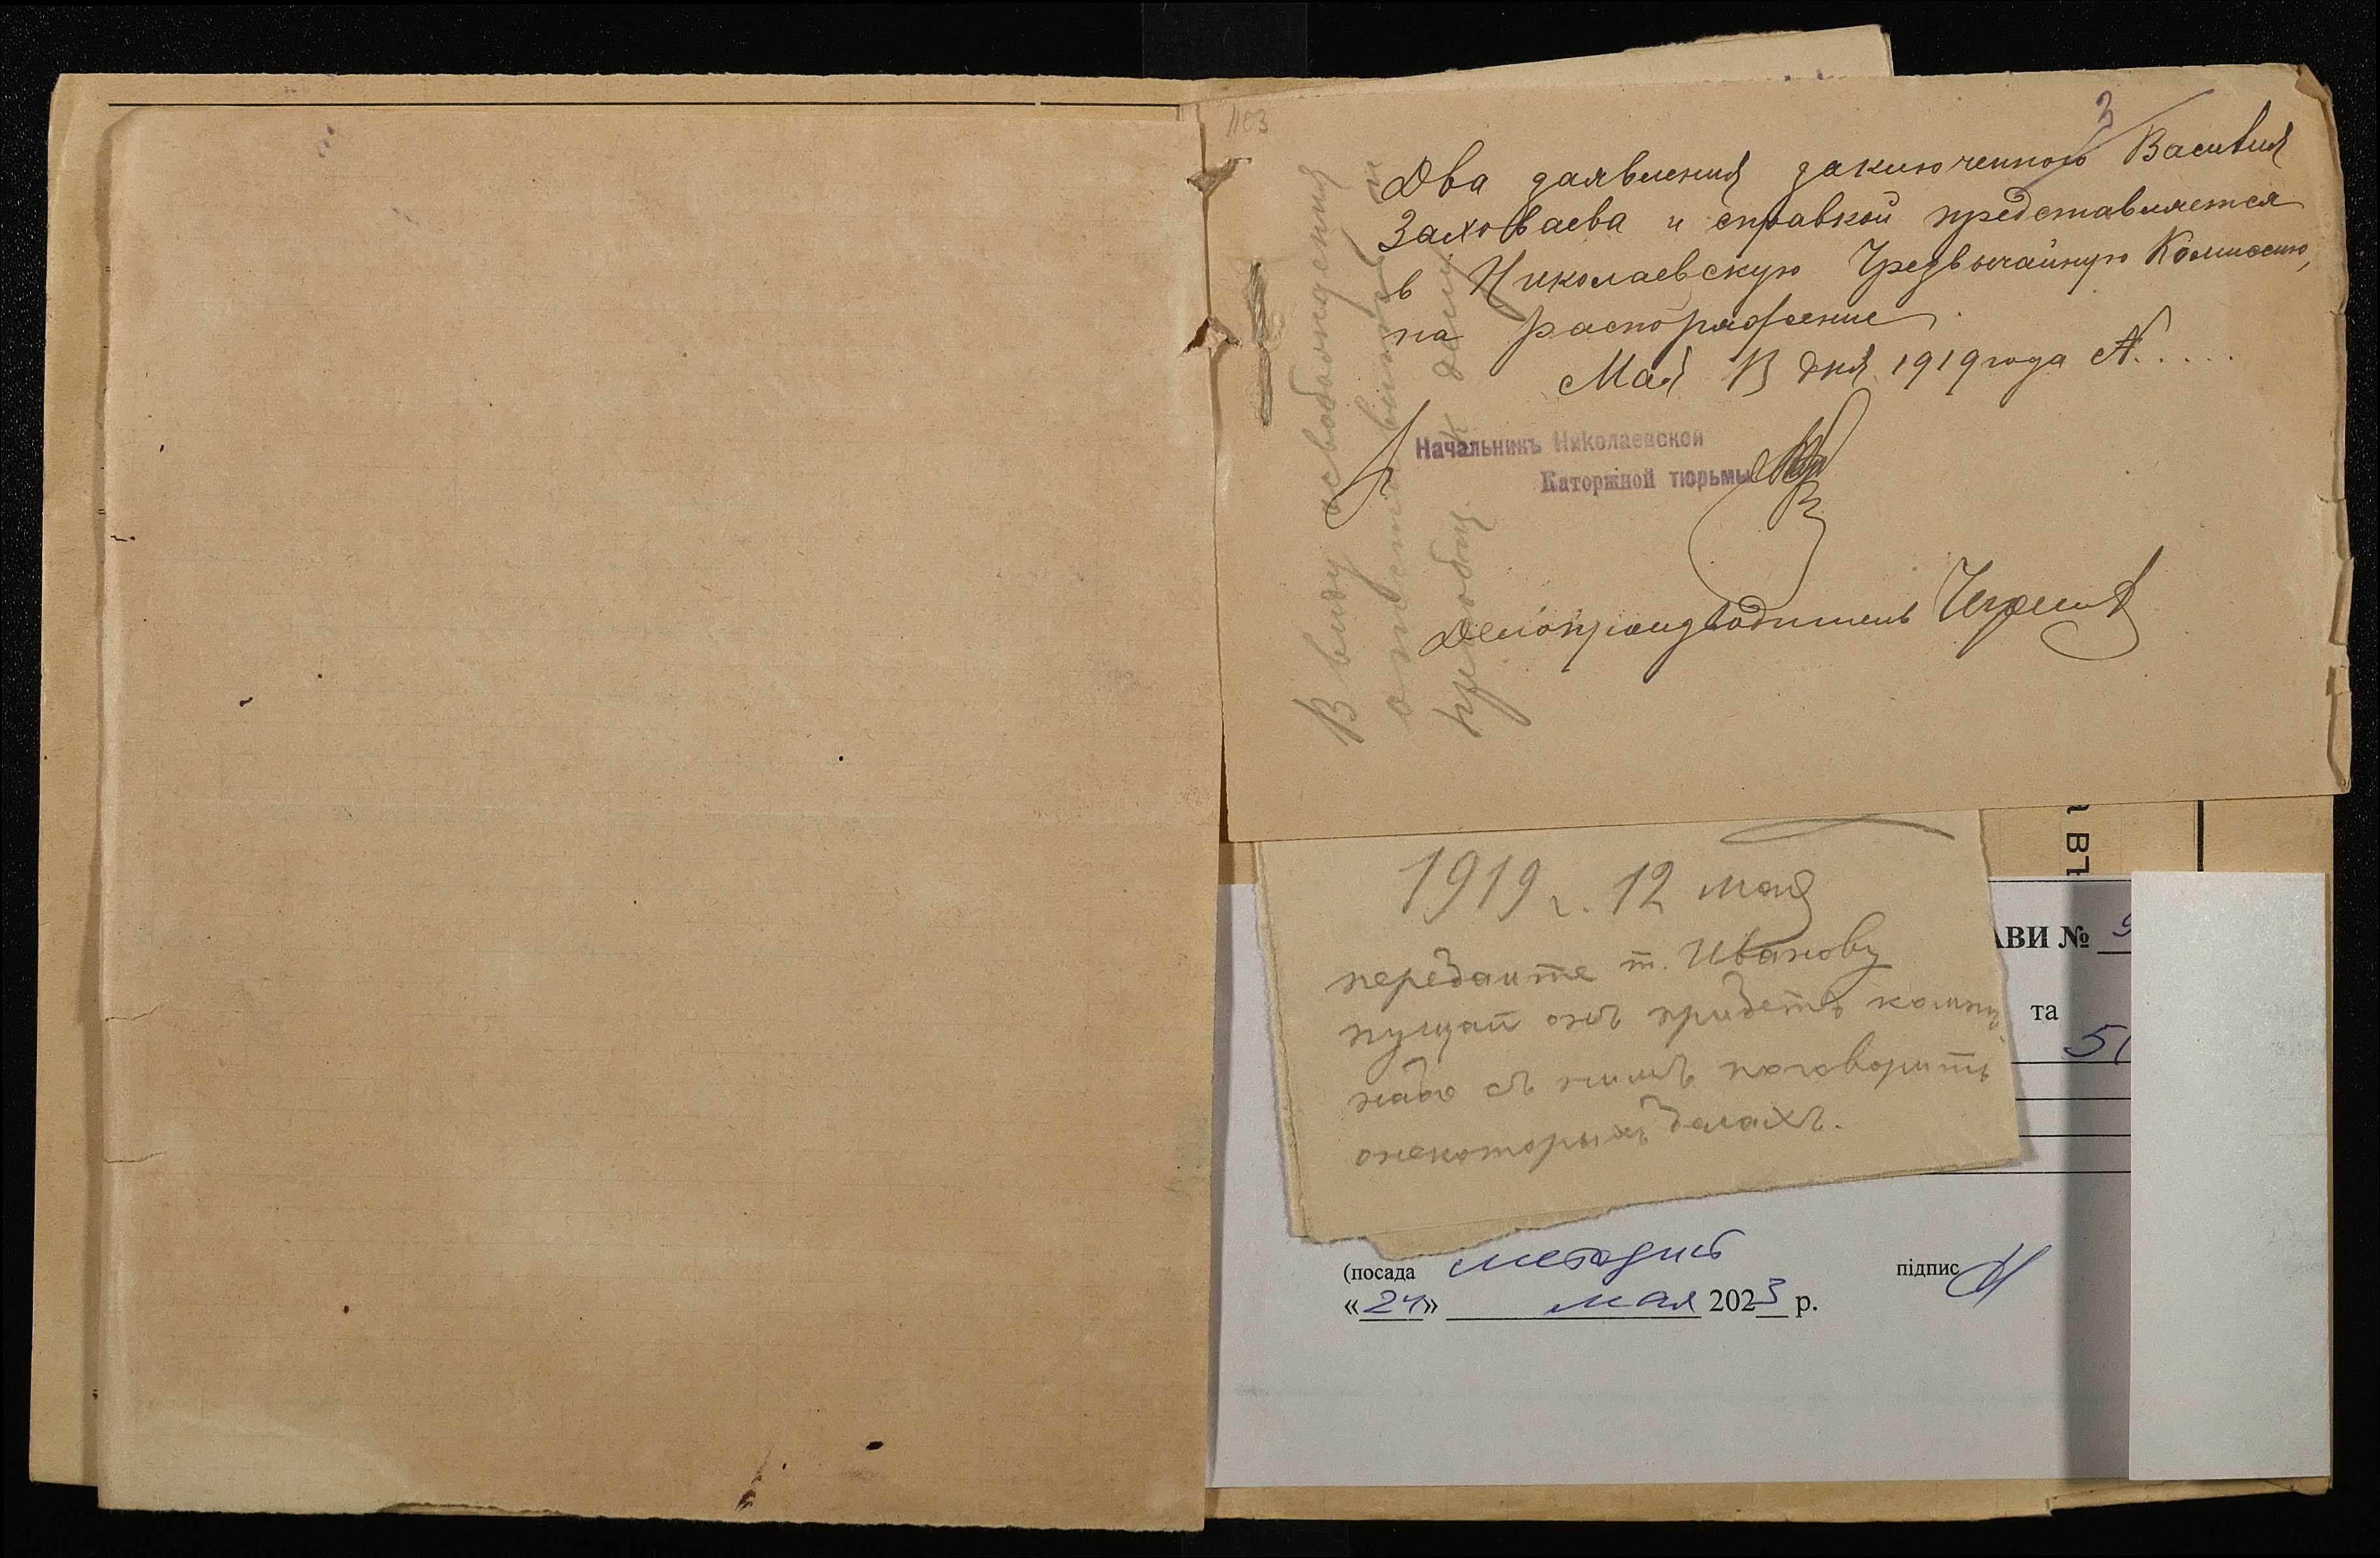 1103
3
Два заявления заключенного Василия
Заховаева и справкой представляется
в Николаевскую Чрезвычайную Комиссию,
на распоряжение
Мая 13 дня 1919 года №.....
Начальникъ Николаевской
Каторжной тюрьмы
Делопроизводитель
В виду освобождения
приобщ. к делу
1919 г. 12 мая
передайте т. Иванову
пущай онъ придетъ комне
надо съ нимъ поговорить
онекоторыхъ делахъ.
АВИ №
та
5
(посада методист
підпис
«24» мая 2023 р.